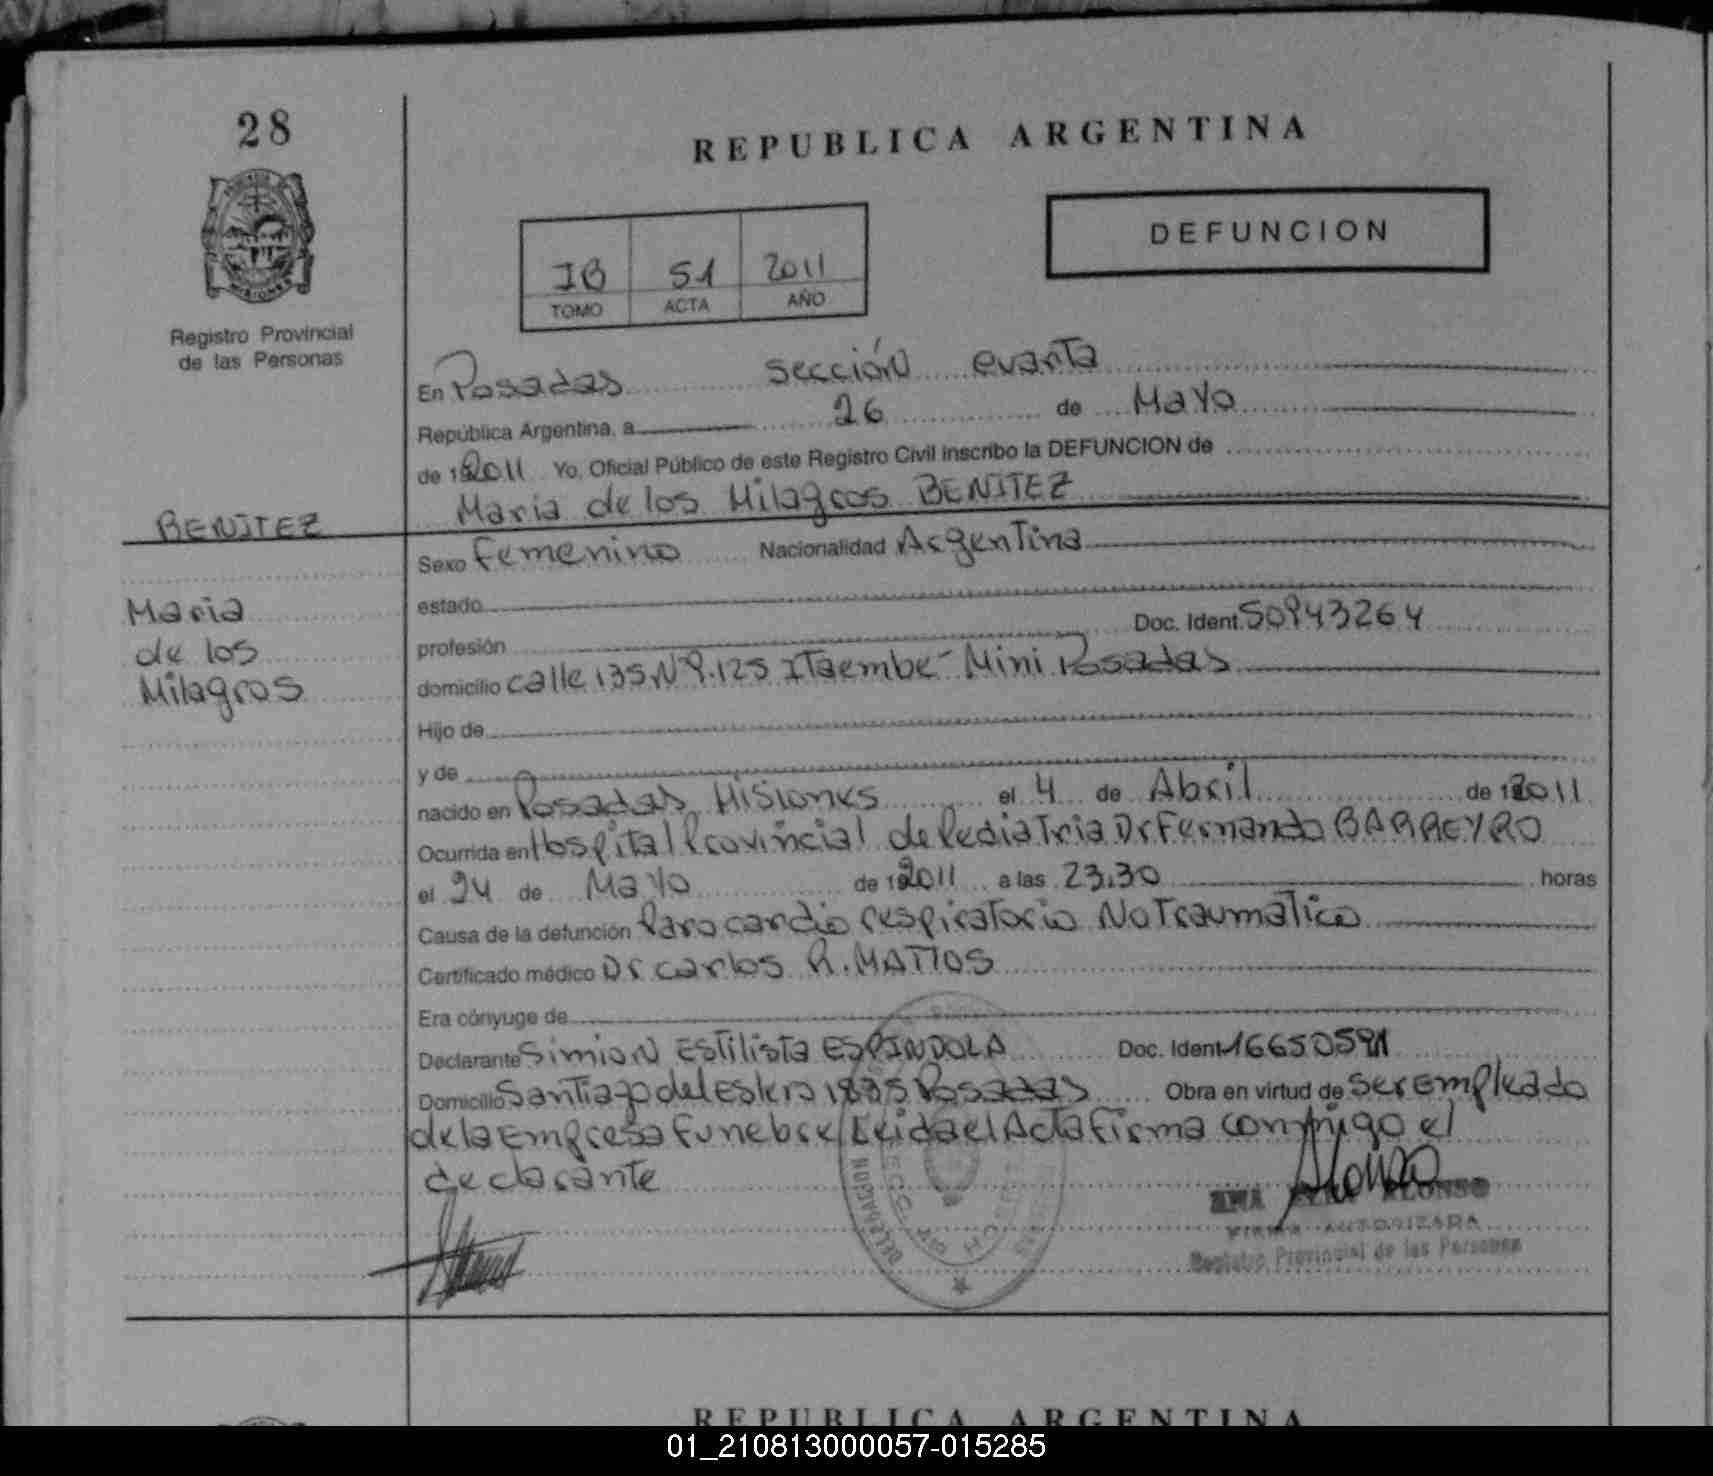 28
REPUBLICA ARGENTINA
DEFUNCION
IB 51 2011
TOMO ACTA AÑO
Registro Provincial
de las Personas
En Posadas sección cuarta
República Argentina, a 26 de Mayo
de 192011 Yo, Oficial Público de este Registro Civil inscribo la DEFUNCION de
Maria de los Milagros BENITEZ
BENITEZ
Maria
de los
Milagros
Sexo Femenino Nacionalidad Argentina
estado
profesión Doc. Ident. 50943264
domicilio calle 135 Nº.125 Itaembe Mini Posadas
Hijo de
y de
nacido en Posadas, Misiones el 4 de Abril de 192011
Ocurrida en Hospital Provincial de Pediatria Dr Fernando BARREYRO
el 24 de Mayo de 192011 a las 23:30 horas
Causa de la defunción Paro cardio respiratorio No Traumatico
Certificado médico Dr carlos R. MATTOS
Era cónyuge de
Declarante Simion Estilista ESPINDOLA Doc. Ident 16650591
Domicilio Santiago del Estero 1835 Posadas Obra en virtud de ser empleado
de la Empresa Funebre/Leida el Acta Firma conmigo el
declarante
DELEGACION
ALONSO
FIRMA AUTORIZADA
Registro Provincial de las Personas
REPUBLICA ARGENTINA
01_210813000057-015285